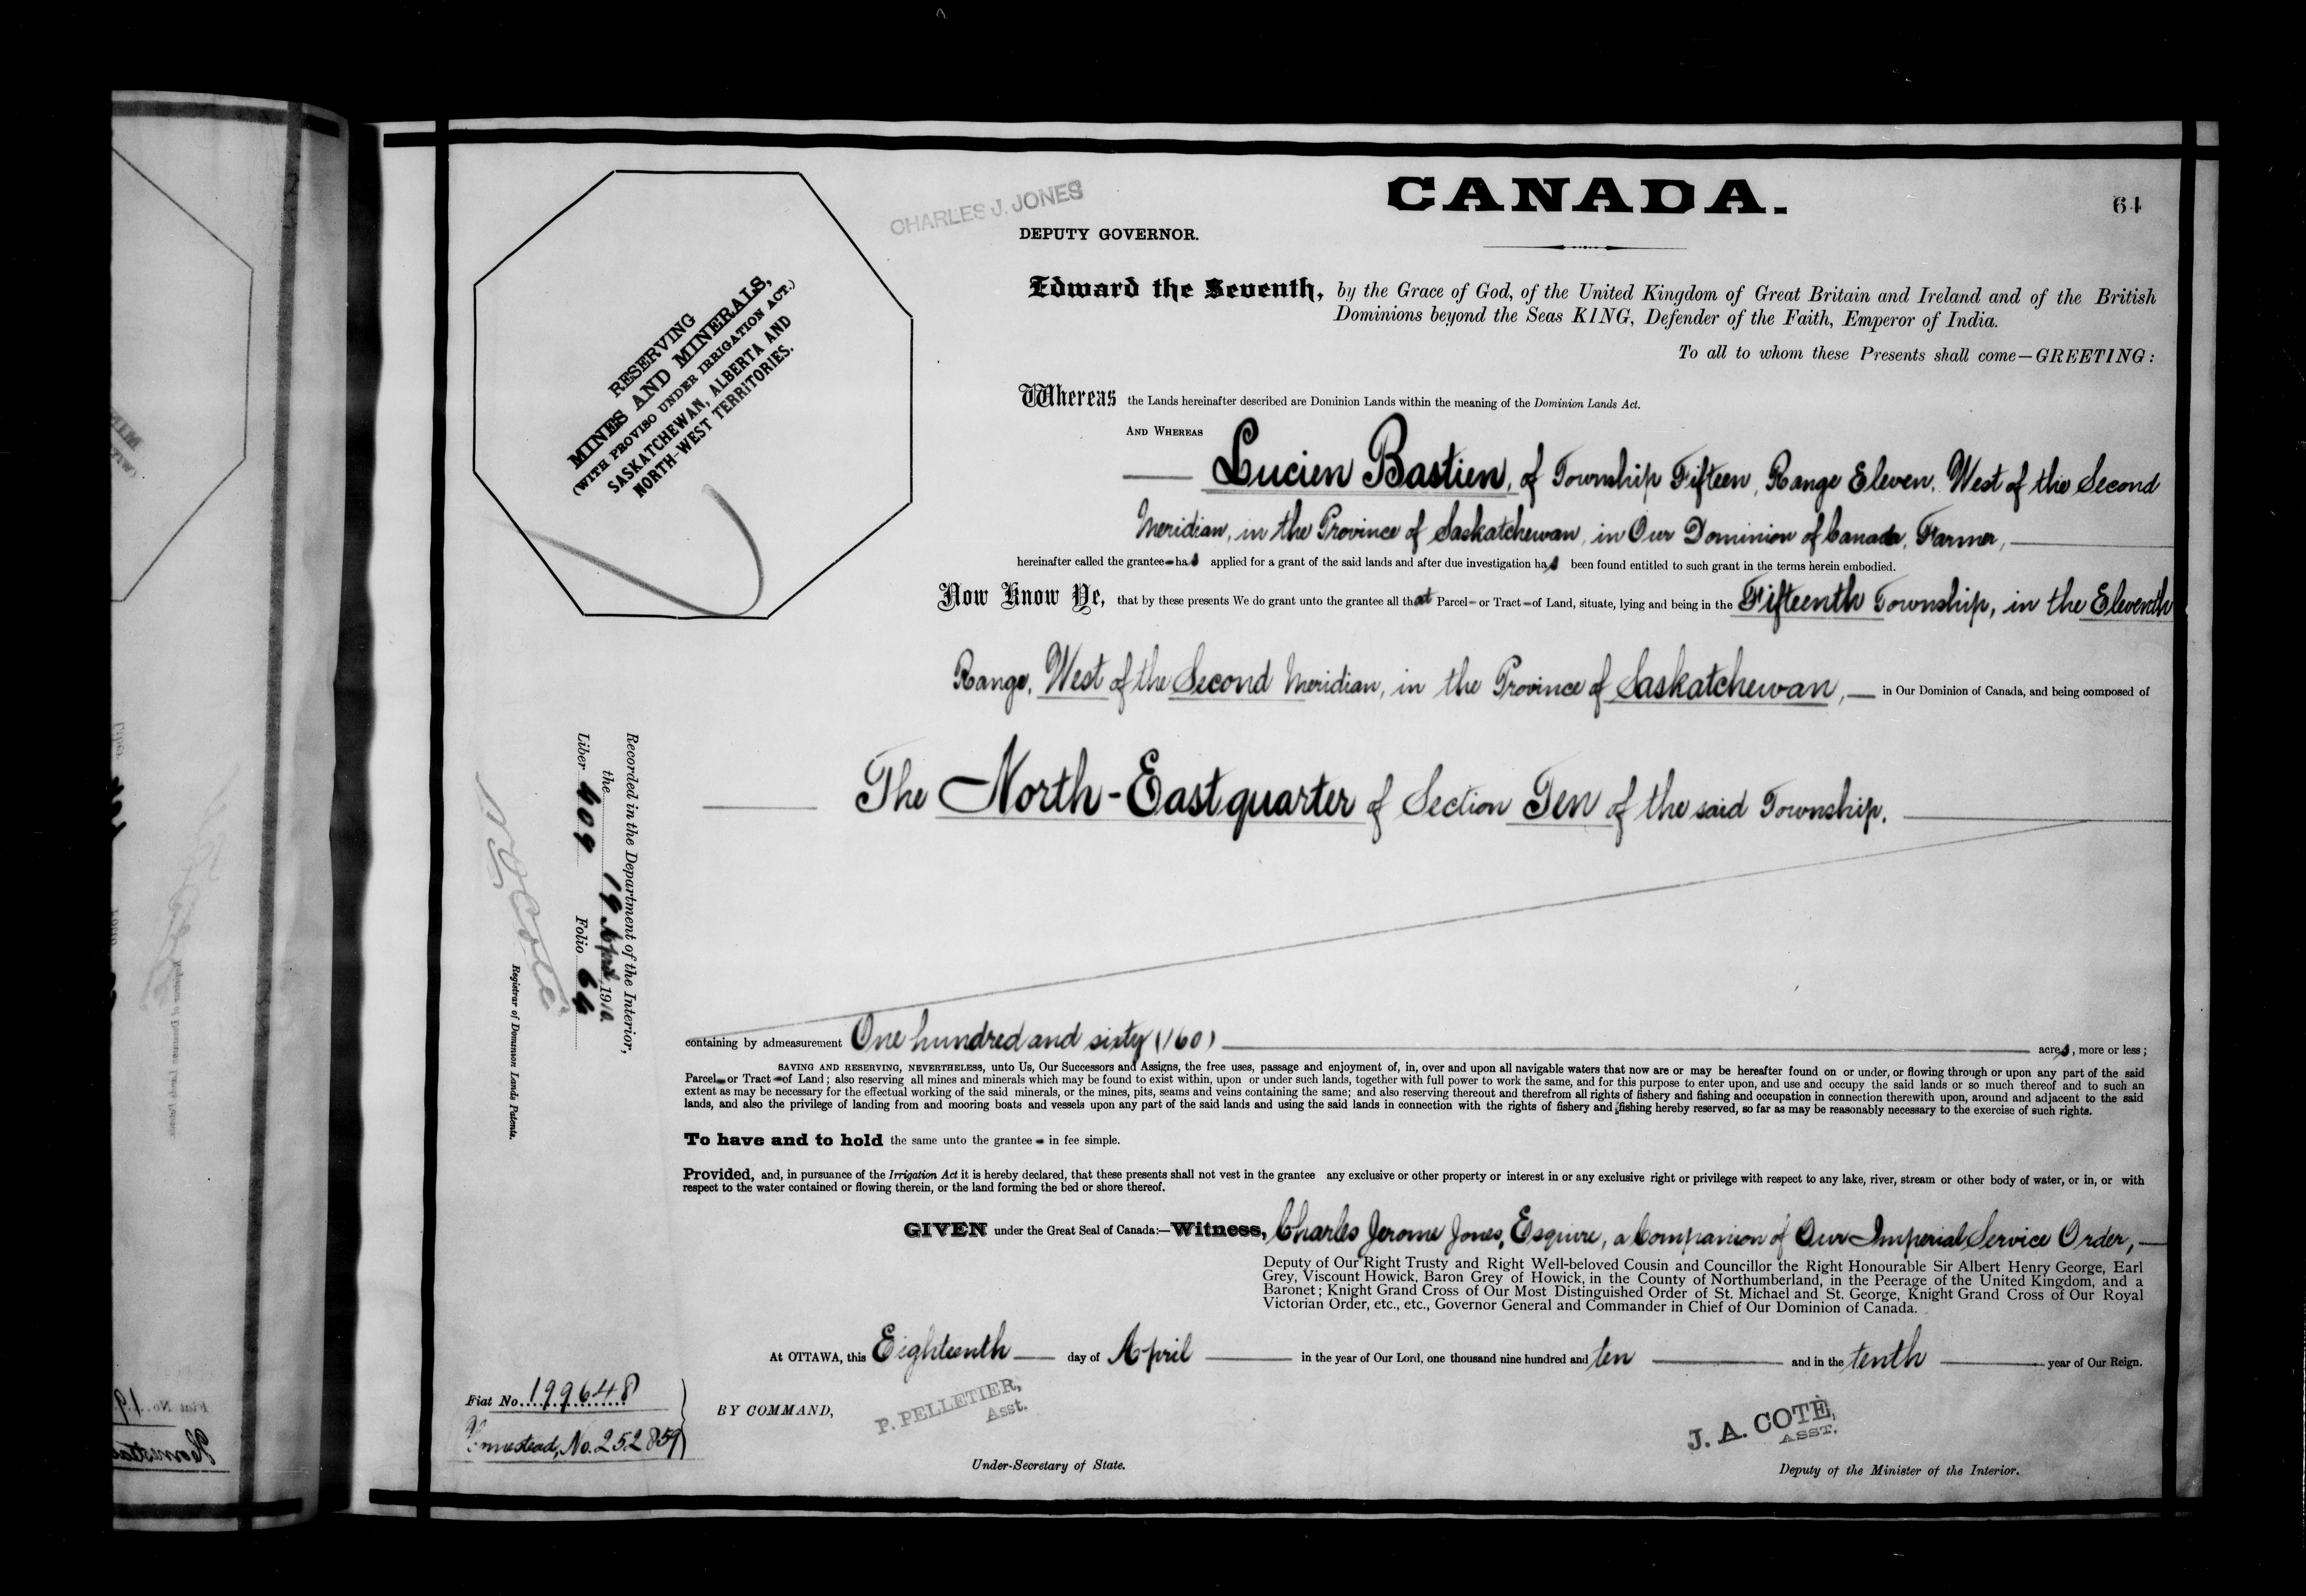 CANADA.
64
CHARLES J. JONES
DEPUTY GOVERNOR.
RESERVING
MINES AND MINERALS,
(WITH PROVISO UNDER IRRIGATION ACT.)
SASKATCHEWAN, ALBERTA AND
NORTH-WEST TERRITORIES.
Edward the Seventh, by the Grace of God, of the United Kingdom of Great Britain and Ireland and of the British
Dominions beyond the Seas KING, Defender of the Faith, Emperor of India.
To all to whom these Presents shall come—GREETING:
Whereas the Lands hereinafter described are Dominion Lands within the meaning of the Dominion Lands Act.
AND WHEREAS
Lucien Bastien, of Township Fifteen, Range Eleven, West of the Second
Meridian, in the Province of Saskatchewan, in Our Dominion of Canada, Farmer,
hereinafter called the grantee has applied for a grant of the said lands and after due investigation has been found entitled to such grant in the terms herein embodied.
Now Know Ye, that by these presents We do grant unto the grantee all that Parcel or Tract of Land, situate, lying and being in the Fifteenth Township, in the Eleventh
Range, West of the Second Meridian, in the Province of Saskatchewan, in Our Dominion of Canada, and being composed of
The North-East quarter of Section Ten of the said Township.
Recorded in the Department of the Interior,
the 19 April 1910.
Liber 409 Folio 64
N O Coté
Registrar of Dominion Lands Patents.
containing by admeasurement One hundred and sixty (160) acres, more or less;
SAVING AND RESERVING, NEVERTHELESS, unto Us, Our Successors and Assigns, the free uses, passage and enjoyment of, in, over and upon all navigable waters that now are or may be hereafter found on or under, or flowing through or upon any part of the said
Parcel or Tract of Land; also reserving all mines and minerals which may be found to exist within, upon or under such lands, together with full power to work the same, and for this purpose to enter upon, and use and occupy the said lands or so much thereof and to such an
extent as may be necessary for the effectual working of the said minerals, or the mines, pits, seams and veins containing the same; and also reserving thereout and therefrom all rights of fishery and fishing and occupation in connection therewith upon, around and adjacent to the said
lands, and also the privilege of landing from and mooring boats and vessels upon any part of the said lands and using the said lands in connection with the rights of fishery and fishing hereby reserved, so far as may be reasonably necessary to the exercise of such rights.
To have and to hold the same unto the grantee in fee simple.
Provided, and, in pursuance of the Irrigation Act it is hereby declared, that these presents shall not vest in the grantee any exclusive or other property or interest in or any exclusive right or privilege with respect to any lake, river, stream or other body of water, or in, or with
respect to the water contained or flowing therein, or the land forming the bed or shore thereof.
GIVEN under the Great Seal of Canada:—Witness, Charles Jerome Jones, Esquire, a Companion of Our Imperial Service Order,
Deputy of Our Right Trusty and Right Well-beloved Cousin and Councillor the Right Honourable Sir Albert Henry George, Earl
Grey, Viscount Howick, Baron Grey of Howick, in the County of Northumberland, in the Peerage of the United Kingdom, and a
Baronet; Knight Grand Cross of Our Most Distinguished Order of St. Michael and St. George, Knight Grand Cross of Our Royal
Victorian Order, etc., etc., Governor General and Commander in Chief of Our Dominion of Canada.
At OTTAWA, this Eighteenth day of April in the year of Our Lord, one thousand nine hundred and ten and in the tenth year of Our Reign.
Fiat No. 199648
Homestead, No. 252859
BY COMMAND,
P. PELLETIER,
Asst.
Under-Secretary of State.
J. A. COTÉ,
ASST.
Deputy of the Minister of the Interior.